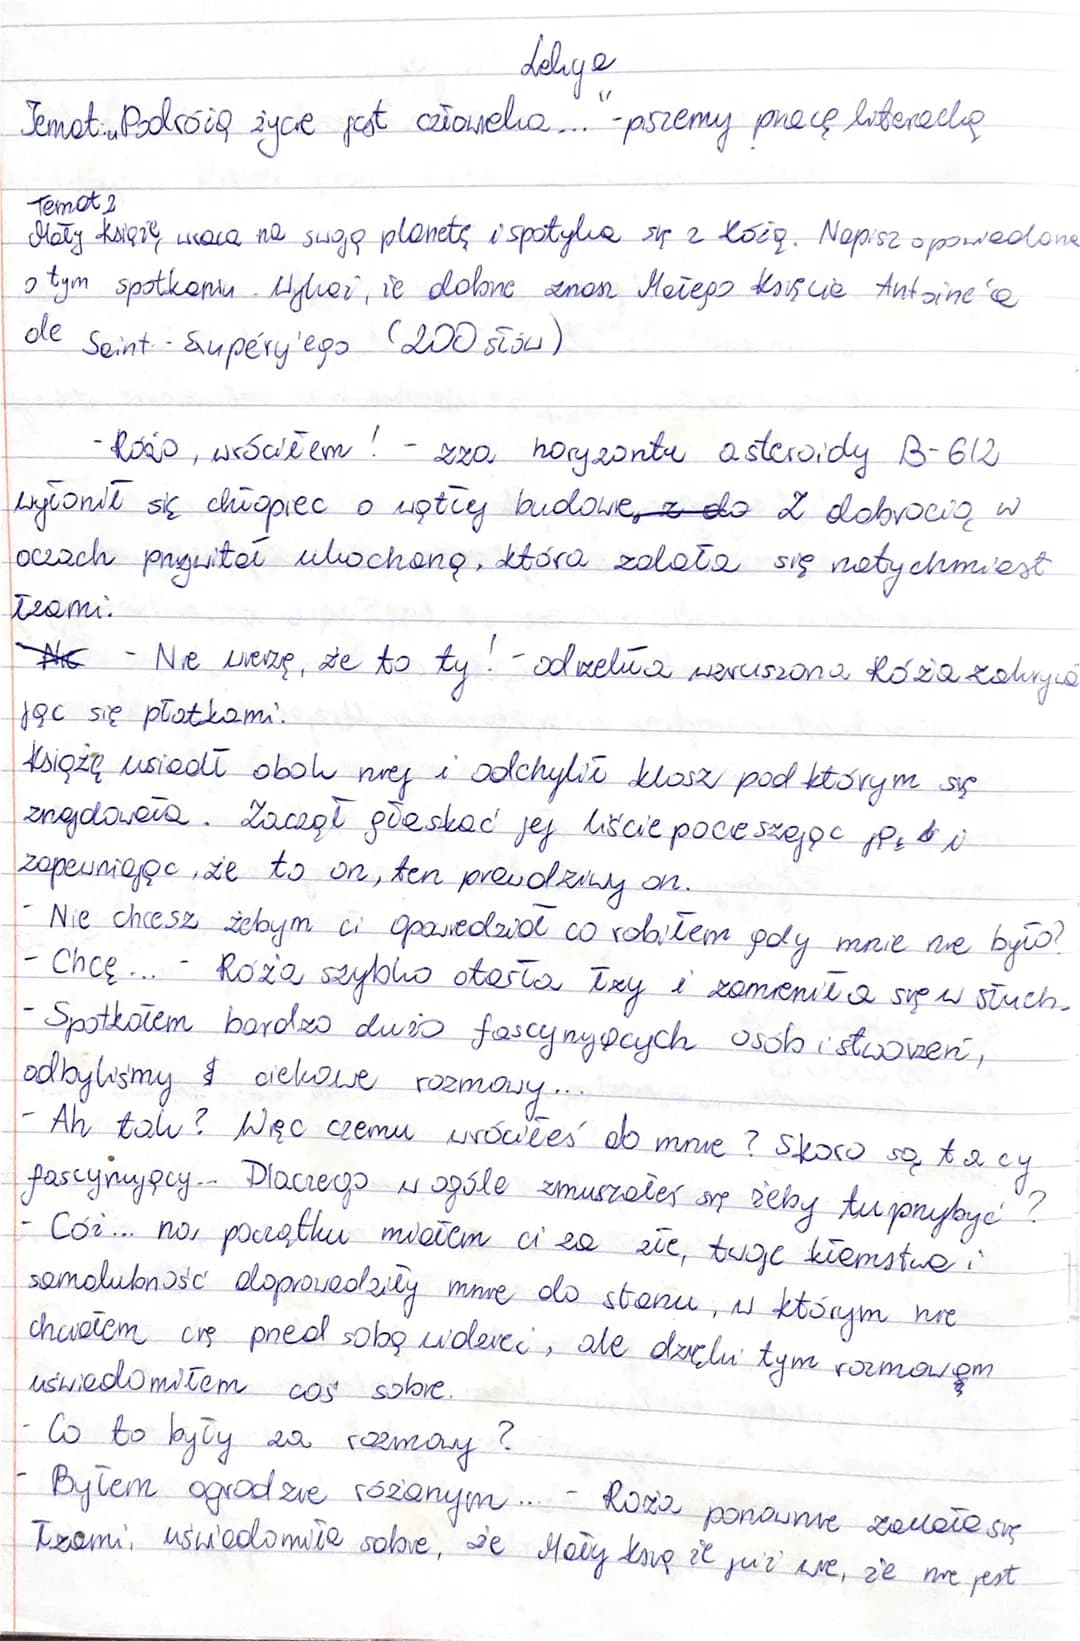 Lekcja
Temat: „Podróżą życie jest człowieka..." - piszemy pracę literacką
Temat 2
Mały Książę wraca na swoją planetę i spotyka się z Różą. Napisz opowiadanie
o tym spotkaniu. Wykaż, że dobrze znasz Małego Księcia Antoine'a
de Saint-Exupéry'ego (200 słów)
- Różo, wróciłem! - zza horyzontu asteroidy B-612
wyłonił się chłopiec o wątłej budowie, z do Z dobrocią w
oczach przywitał ukochaną, która zalała się natychmiast
łzami.
- Nie wierzę, że to ty! - odrzekła wzruszona Róża zakrywa
jąc się płatkami.
Książę usiadł obok niej i odchylił klosz pod którym się
znajdowała. Zaczął głaskać jej liście pocieszając ją i
zapewniając, że to on, ten prawdziwy on.
- Nie chcesz żebym ci opowiedział co robiłem gdy mnie nie było?
- Chcę... - Róża szybko otarła łzy i zamieniła się w słuch.
- Spotkałem bardzo dużo fascynyjących osób i stworzeń,
odbyliśmy ciekawe rozmowy...
- Ah tak? Więc czemu wróciłeś do mnie? Skoro są tacy
fascynujący... Dlaczego w ogóle zmuszałeś się żeby tu przybyć?
- Cóż... na początku miałem ci za złe, twoje kłamstwa i
samolubność doprowadziły mnie do stanu, w którym nie
chciałem cię przed sobą widzieć, ale dzięki tym rozmowom
uświadomiłem coś sobie.
- Co to były za rozmowy?
- Byłem ogrodzie różanym... - Róża ponownie zalała się
łzami, uświadomiła sobie, że Mały Książę już wie, że nie jest